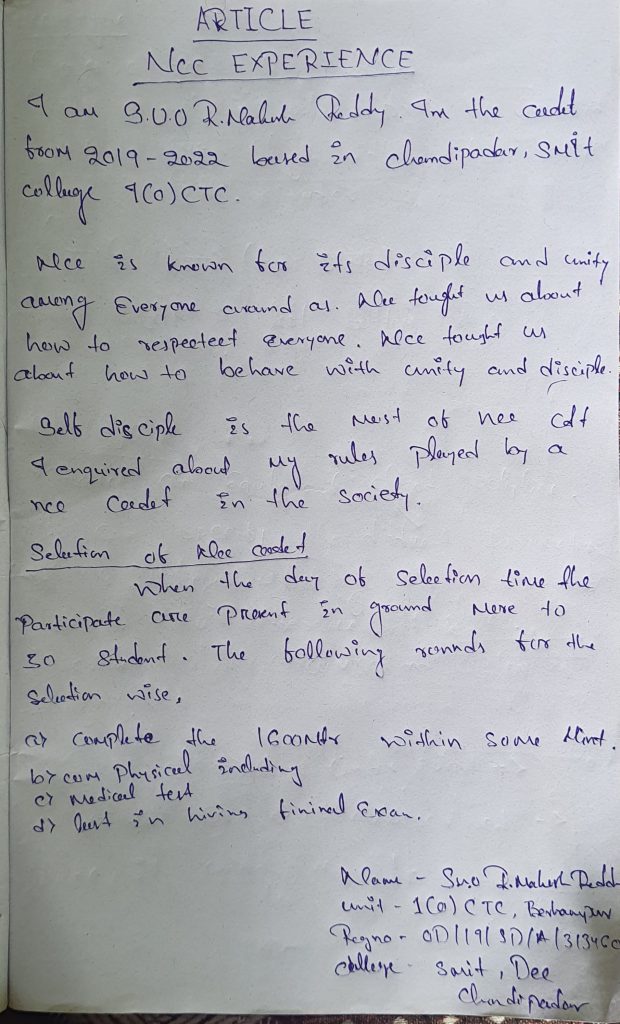 ARTICLE
NCC EXPERIENCE
I am S.U.O R.Mahesh Reddy. Im the cadet
from 2019-2022 based in chandipadar, SMIT
college 1(O) CTC.
Ncc is known for its disciple and unity
among Everyone around as. Ncc tought us about
how to respecteet everyone. Ncc tought us
about how to behave with unity and disciple.
Self disciple is the Most of ncc cdt
I enquired about my rules played by a
ncc Cadet in the society.
Selection of Ncc cadet
When the day of selection time the
Participate are Present in ground More to
30 Student. The following rounds for the
Selection wise,
a) complete the 1600Mtr within some Mint.
b) Physical including
c) Medical test
d) in fininal Exam.
Name - Suo R.Mahesh Reddy
unit - 1(O) CTC, Berhampur
Regno - OD/19/SD/A/3134
college - Smit, Dee
Chandipadar